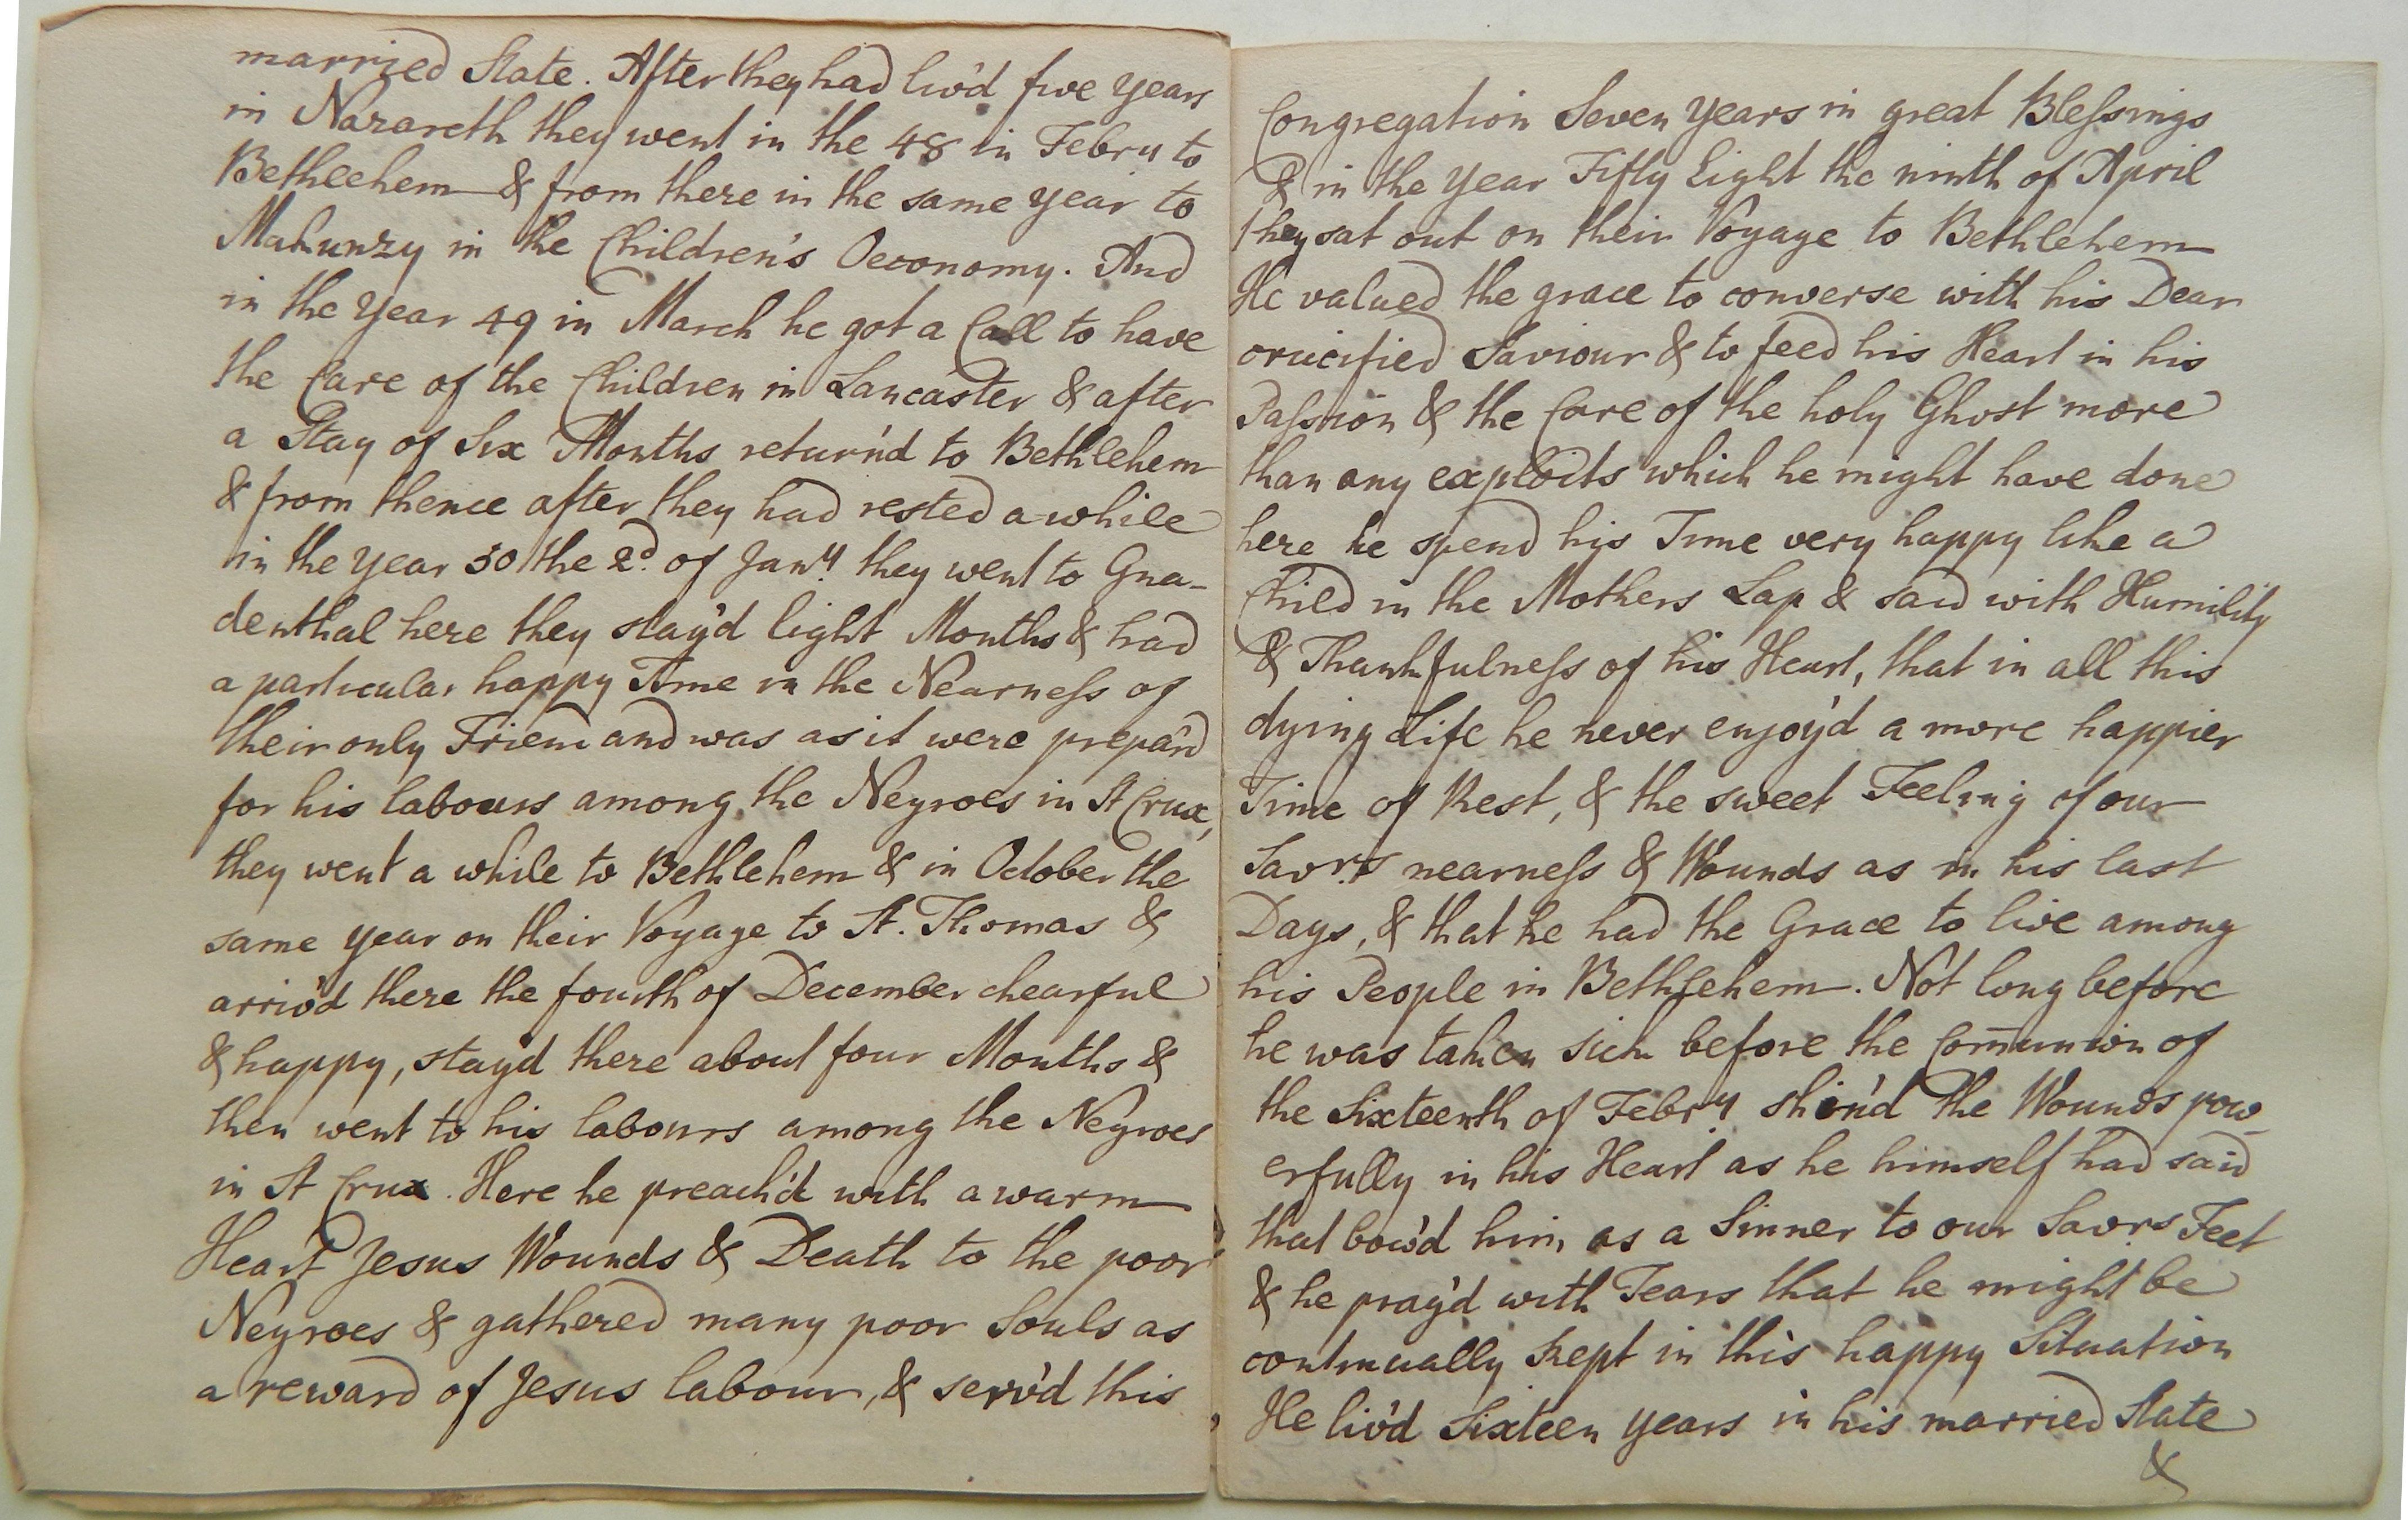 married State. After they had liv'd five years
in Nazareth they went in the 48 in Febry to
Bethlehem & from there in the same year to
Makunzy in the Children's Oeconomy. And
in the Year 49 in March he got a Call to have
the Care of the Children in Lancaster & after
a Stay of Six Months return'd to Bethlehem
& from thence after they had rested a while
in the Year 50 the 2d. of Jany. they went to Gna-
denthal here they stay'd Eight Months & had
a particular happy Time in the Nearness of
their only Friend and was as it were prepar'd
for his labours among the Negroes in St Crux,
they went a while to Bethlehem & in October the
same year on their Voyage to St. Thomas &
arriv'd there the fourth of December chearful
& happy, stay'd there about four Months &
then went to his labours among the Negroes
in St Crux. Here he preach'd with a warm
Heart Jesus Wounds & Death to the poor
Negroes & gathered many poor Souls as
a reward of Jesus labour, & serv'd this
Congregation Seven Years in great Blessings
& in the Year Fifty Eight the ninth of April
they sat out on their Voyage to Bethlehem
He valued the grace to converse with his Dear
crucified Saviour & to feed his Heart in his
Passion & the Care of the holy Ghost more
than any exploits which he might have done
here he spend his Time very happy like a
Child in the Mothers Lap & said with Humility
& Thankfulness of his Heart, that in all this
dying Life he never enjoy'd a more happier
Time of Rest, & the sweet Feeling of our
Savrs. nearness & Wounds as in his last
Days, & that he had the Grace to live among
his People in Bethlehem. Not long before
he was taken sick before the Com̄union of
the Sixteenth of Febry. shin'd the Wounds pow-
erfully in his Heart as he himself had said
that bow'd him as a Sinner to our Savrs. Feet
& he pray'd with Tears that he might be
continually kept in this happy Situation
He liv'd Sixteen years in his married State
&